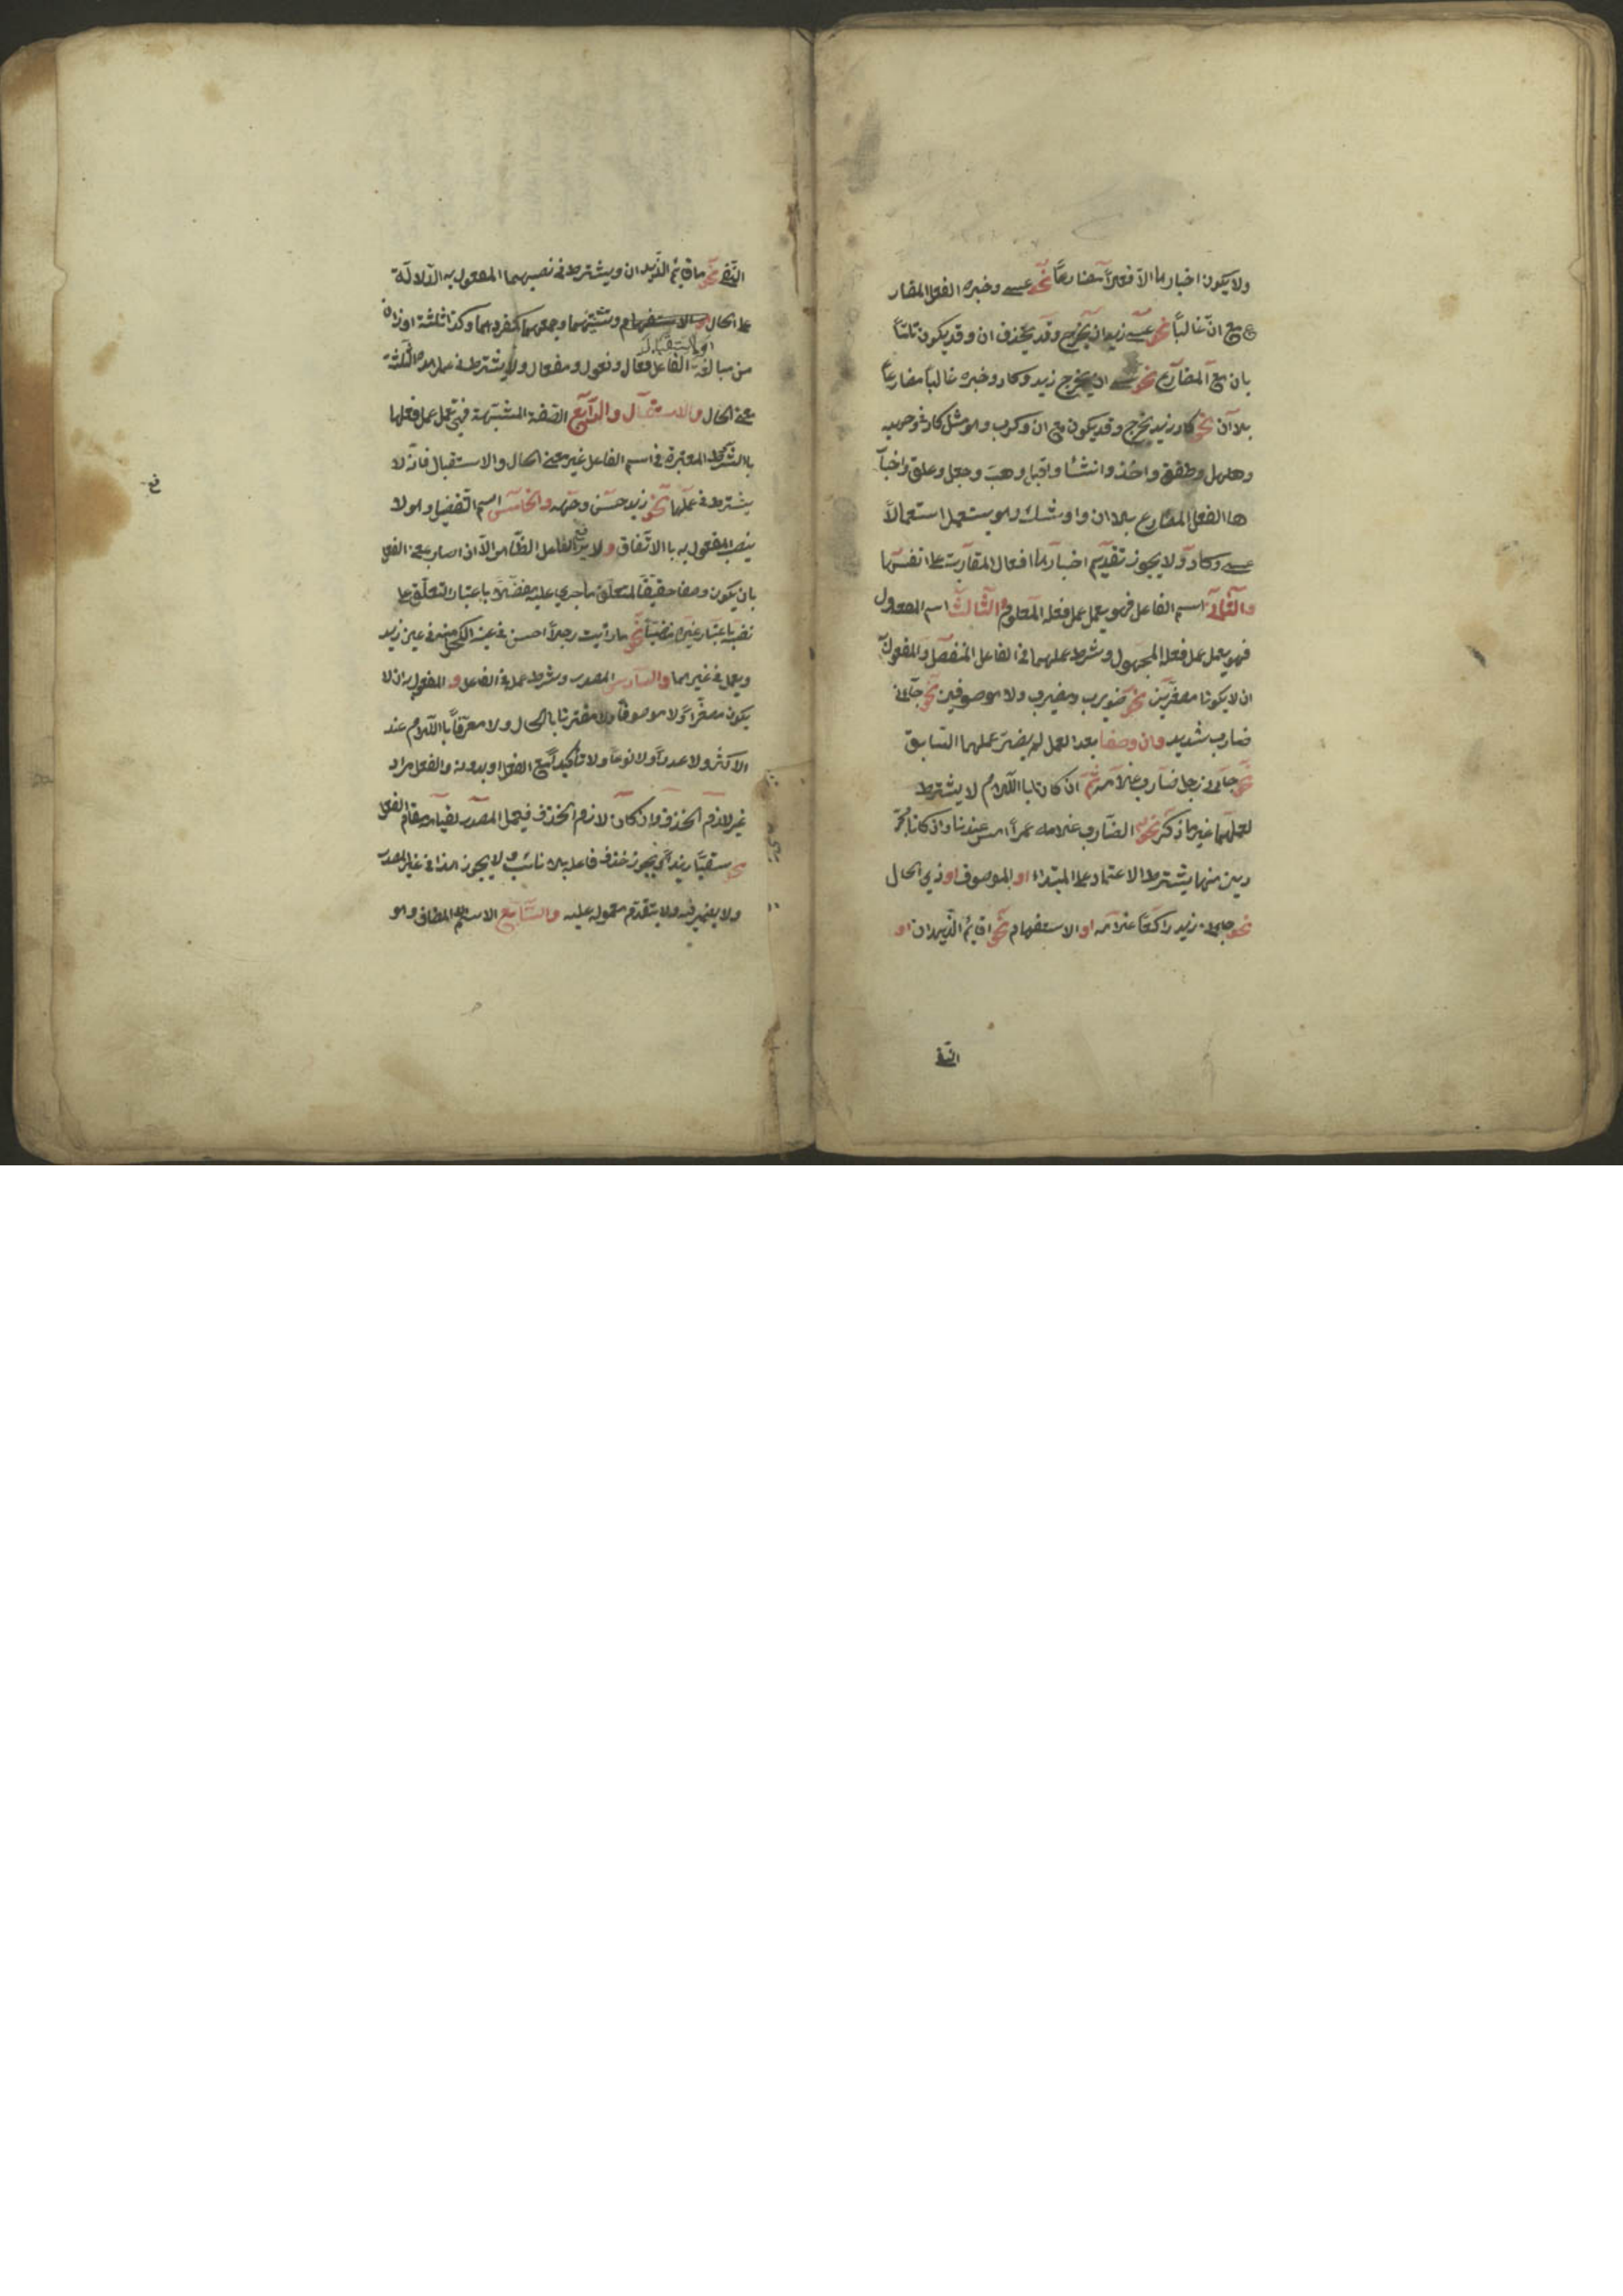 ولا يكون اخبارها الا فعلاً مضارعاً نحو عسى وخبره الفعل المضار
ع مع ان غالباً نحو عسى زيد ان يخرج وقد يحذف ان وقد يكون تامّاً
بان مع المضارع نحو عسى ان يخرج زيد وكاد وخبره غالباً مضارعاً
بلا ان نحو كاد زيد يخرج وقد يكون مع ان وكرب وهو مثل كاد في وجهيه
وهلهل وطفق واخذ وانشأ واقبل وهب وجعل وعلق واخبا
ها الفعل المضارع بلا ان واوشك وهو يستعمل استعمال
عسى وكاد ولا يجوز تقديم اخبارها افعال المقاربة على انفسها
والثاني اسم الفاعل فهو يعمل عمل فعله المعلوم والثالث اسم المفعول
فهو يعمل عمل فعله المجهول وشرط عملهما في الفاعل المنفصل والمفعول
ان لا يكونا مصغرين نحو ضويرب ومضيرب ولا موصوفين نحو جاءني
ضارب شديد وان وصفا بعد العمل لم يضر عملهما السابق
نحو جاءني رجل ضارب غلامه ثم ان كانا باللام لا يشترط
لعملهما غير ما ذكر نحو الضارب غلامه عمراً امس عندنا وان كانا مجر
دين منها يشترط الاعتماد على المبتداء او الموصوف او ذي الحال
نحو جاء زيد راكعاً غلامه او الاستفهام نحو اقائم الزيدان او
النفى
النفى نحو ما قائم الزيدان ويشترط في نصبهما المفعول به الدلالة
على الحال والاستفهام وتثنيتهما وجمعهما كمفردهما وكذا ثلثة اوزان
او الاستقبال
من مبالغة الفاعل فعال وفعول ومفعال ولا يشترط في عمل هذه الثلثة
معنى الحال والاستقبال والرابع الصفة المشبهة فهي تعمل عمل فعلها
بالشروط المعتبرة في اسم الفاعل غير معنى الحال والاستقبال فانه لا
يشترط في عملها نحو زيد حسن وجهه والخامس اسم التفضيل وهو لا
ينصب المفعول به بالاتفاق ولا يرفع الفاعل الظاهر الا ان صار بمعنى الفعل
بان يكون وصفا حقيقة لمتعلق ما جرى عليه مفضلا باعتبار التعلق على
نفسه باعتبار غيره منفياً نحو ما رأيت رجلاً احسن في عينه الكحل منه في عين زيد
ويعمل في غيرهما والسادس المصدر وشرط عمله في الفاعل والمفعول به ان لا
يكون مصغراً ولا موصوفاً ولا مقترنا بالحال ولا معرفاً باللام عند
الاكثر ولا عدداً ولا نوعاً ولا تأكيداً مع الفعل او بدونه والفعل مراد
غير لازم الحذف وان كان لازم الحذف فيعمل المصدر لقيامه مقام الفعل
نحو سقياً زيداً ويجوز حذف فاعله بلا نائب ولا يجوز هذا في غير المصدر
ولا يضمر فيه ولا يتقدم معموله عليه والسابع الاسم المضاف وهو